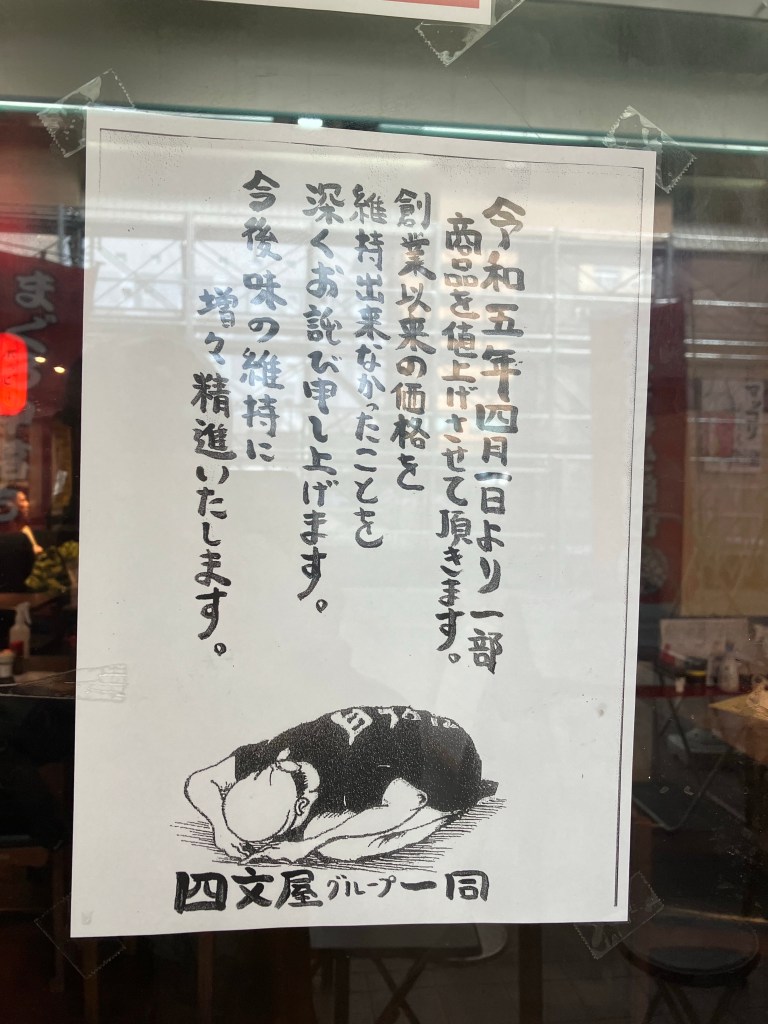 令和五年四月一日より一部
商品を値上げさせて頂きます。
創業以来の価格を
維持出来なかったことを
深くお詫び申し上げます。
今後味の維持に
増々精進いたします。
四文屋グループ一同